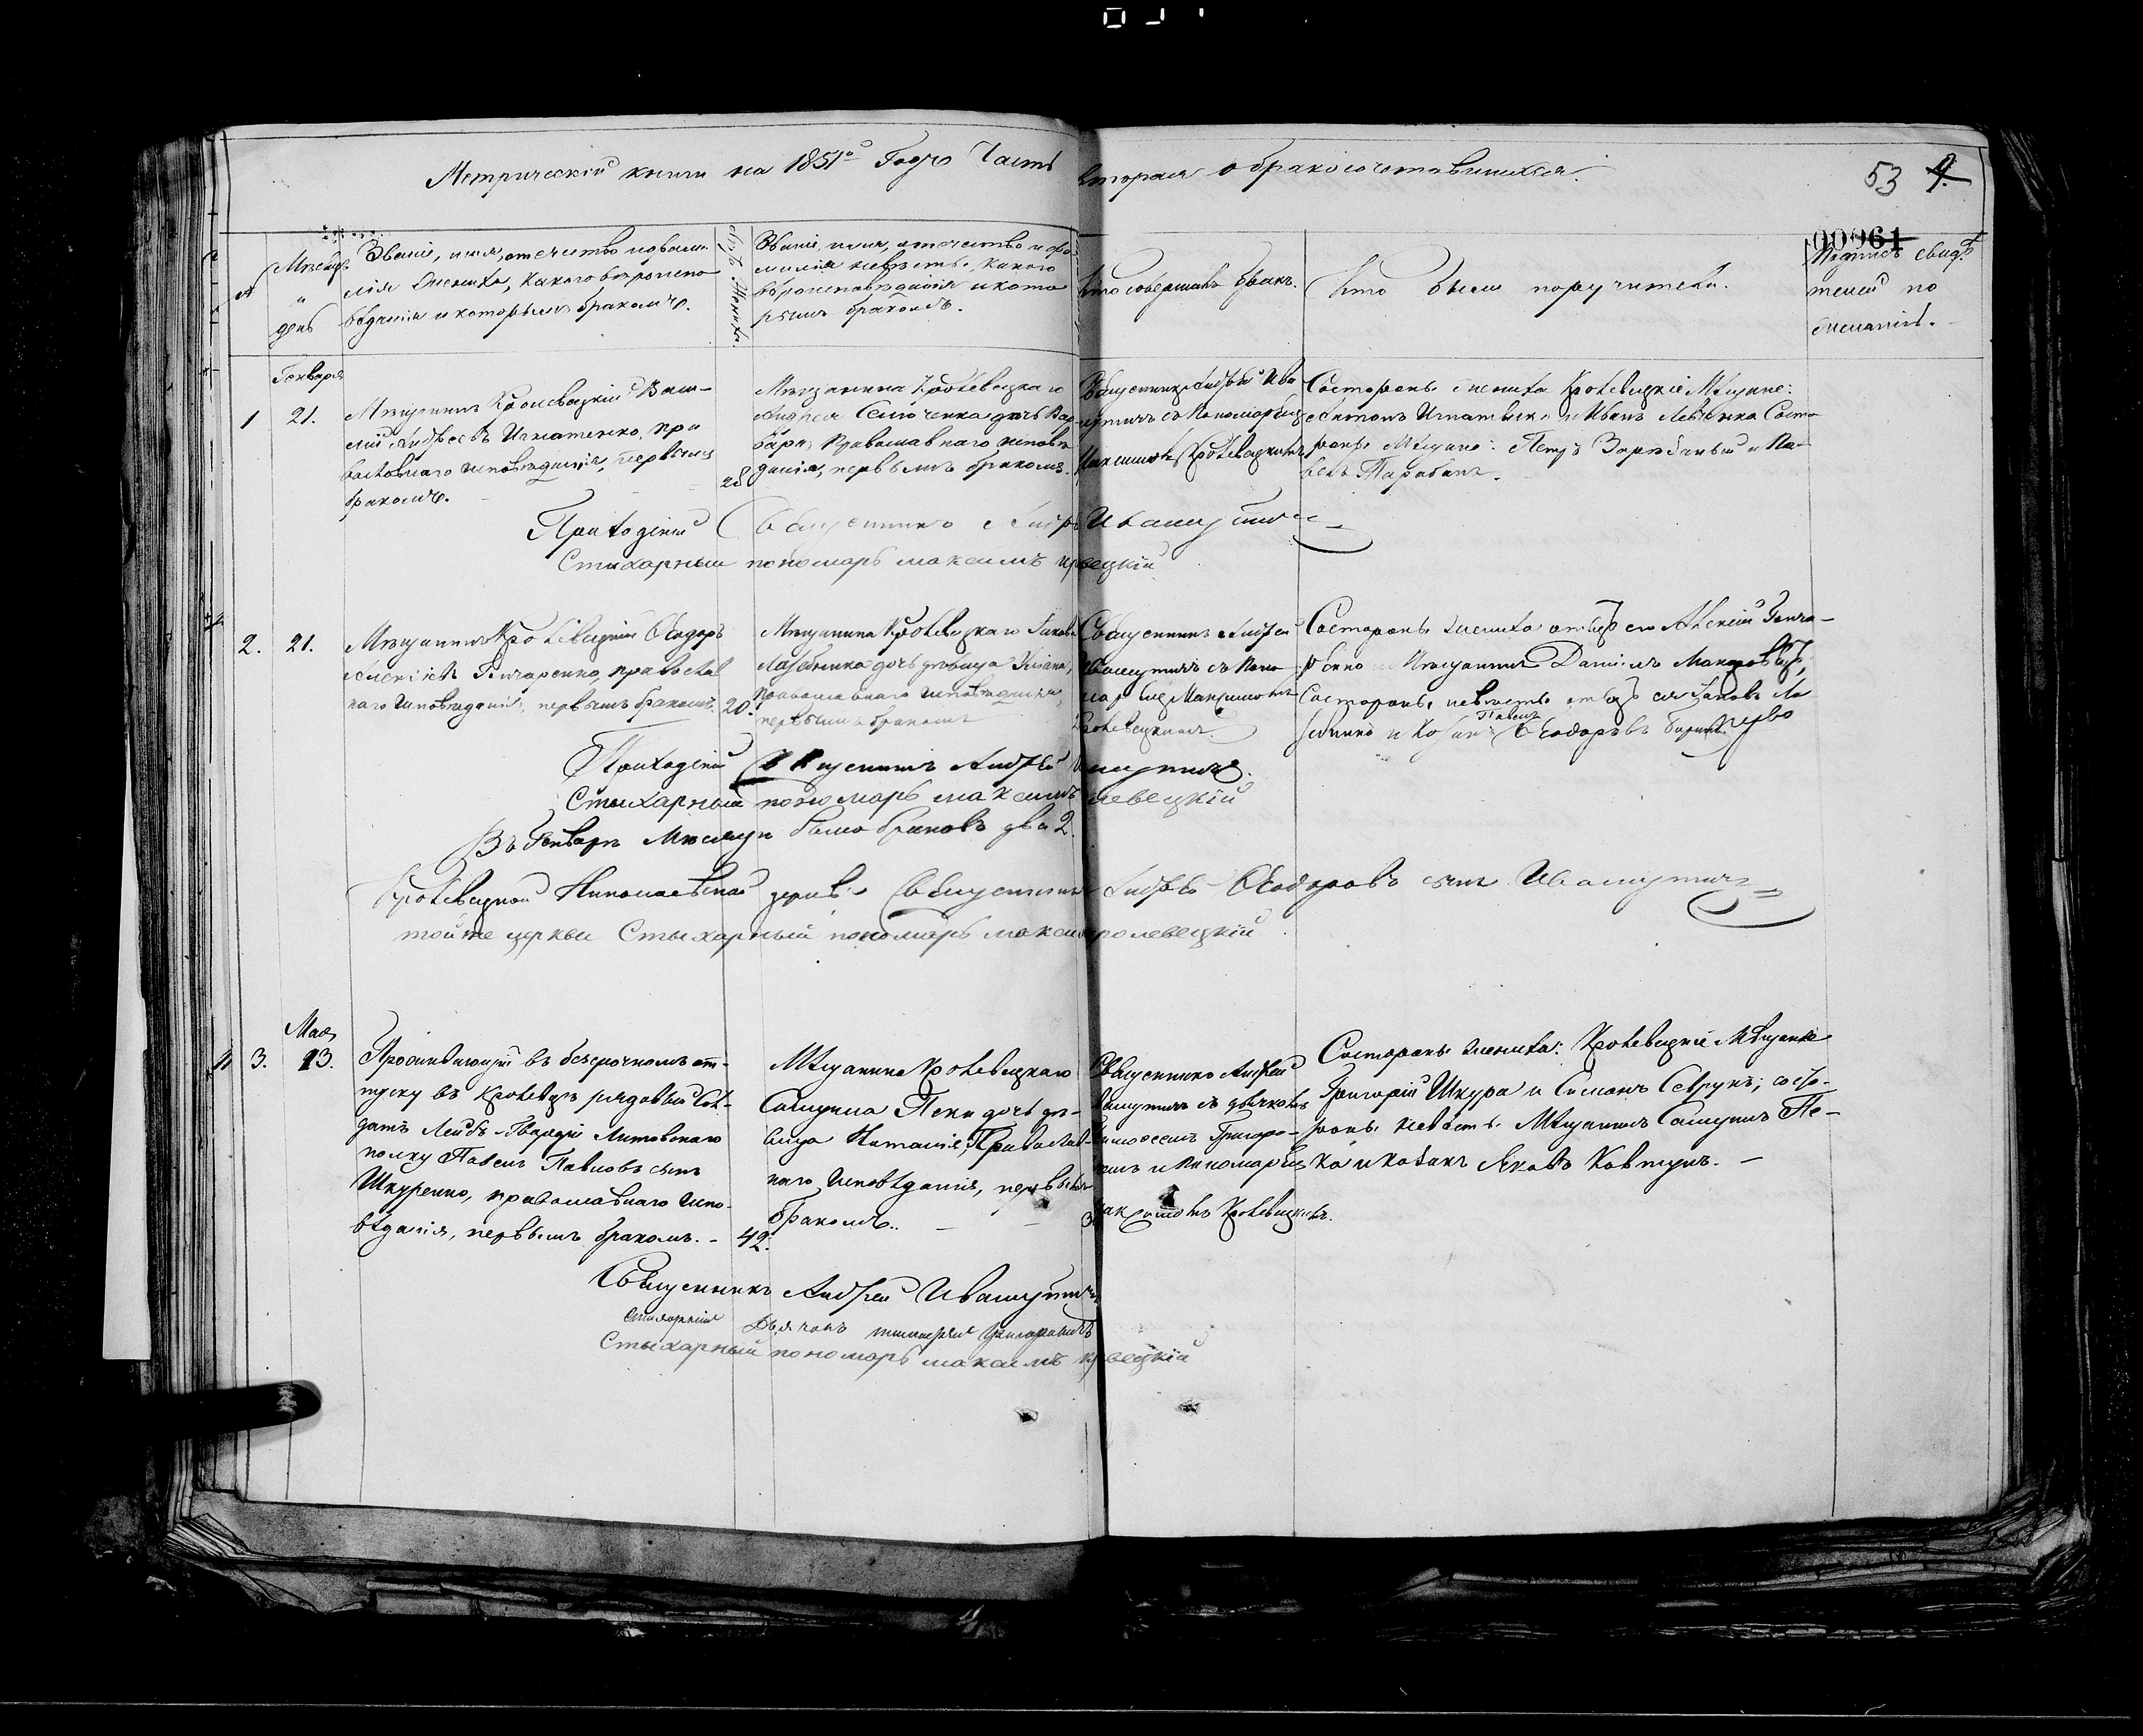 Метрической книги на 1851й Годъ Часть вторая о бракосочетавшихся.
53 4.
00961
№
Мѣсяцъ и день
Званіе, имя, отечество и фами-
лія жениха, какого вѣроиспо-
вѣданія и которымъ бракомъ.
лѣта Жениха.
Званіе, имя, отечество и фа-
милія невѣсты, какого
вѣроисповѣданія и кото
рымъ бракомъ.
Кто совершалъ бракъ.
Кто были поручители.
Подпись свидѣ
телей по
желанію.
Генваря
1 21.
Мѣщанинъ Кролевецкій Васи-
лій Андреевъ Игнатенко, пра
вославнаго исповѣданія, первымъ
бракомъ.
28
Мѣщанина Кролевецкаго
Андрея Семоченка дочь Вар
вара, Православнаго исповѣ
данія, первымъ бракомъ.
Священникъ Андрей Ива
шутичъ съ Пономаремъ
Максимомъ Кролевецкимъ
Состороны жениха Кролевецкіе Мѣщане:
Антонъ Игнатенко и Иванъ Левченко Состо
роны Мѣщане: Петръ Зарѣбаный и Па-
велъ Тарабанъ.
Приходскій Священникъ Андрей Ивашутичъ
Стихарный пономарь максимъ кролевецкій
2. 21.
Мѣщанинъ Кролевецкій Ѳеодоръ
Алексіевъ Гончаренко, православ
наго исповѣданія, первымъ бракомъ.
20.
Мѣщанина Кролевецкаго Іакова
Лазебника дочь дѣвица Уліана,
православнаго исповѣданія,
первымъ бракомъ
Священникъ Андрей
Ивашутичъ съ Поно
маремъ Максимомъ
Кролевецкимъ.
Состороны жениха отецъ его Алексій Гонча-
ренко и Мѣщанинъ Даніилъ Макаровъ,
Состороны невѣсты отецъ ея Іаковъ Ла
зебникъ и Козакъ Павелъ Ѳеодоровъ
Приходскій Священникъ Андрей Ивашутичъ.
Стихарный пономарь максимъ кролевецкій
Въ Генварѣ Мѣсяцѣ было браковъ два 2.
Кролевецкой Николаевской церкви Священникъ Андрей Ѳеодоровъ сынъ Ивашутичъ
тойже церкви Стыхарный пономарь максимъ кролевецкій
Мая
3. 13.
Проживающій въ безсрочномъ от-
пуску въ Кролевцѣ рядовый Сол-
датъ Лейбъ-Гвардіи Литовскаго
полку Павелъ Павловъ сынъ
Шкуренко, православнаго испо-
вѣданія, первымъ бракомъ.
42.
Мѣщанина Кролевецкаго
Самуила Пеки дочь дѣ-
вица Наталія, Православ-
наго исповѣданія, первымъ
бракомъ.
Священникъ Андрей
Ивашутичъ съ дьячкомъ
Тимоѳеемъ Григоро-
вичемъ и пономаремъ
Максимомъ Кролевецкимъ.
Состороны жениха: Кролевецкіе Мѣщане
Григорій Шкура и Симонъ Севрукъ; состо-
роны невѣсты Мѣщанинъ Самуилъ Пе-
ка и козакъ Яковъ Ковтунъ.
Священникъ Андрей Ивашутичъ
Стихарный Дьячокъ тимоѳей Григоровичъ
Стыхарный пономарь максимъ кролевецкій